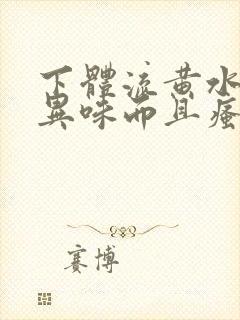 下體流黃水
異味而且瘙
賽博